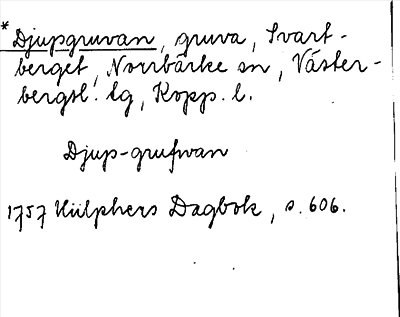 * Djupgruvan, gruva, Svart-
berget, Norrbärke sn, Väster-
bergsl. lg, Kopp. l.
Djup-grufvan
1757 Hülphers Dagbok, s. 606.